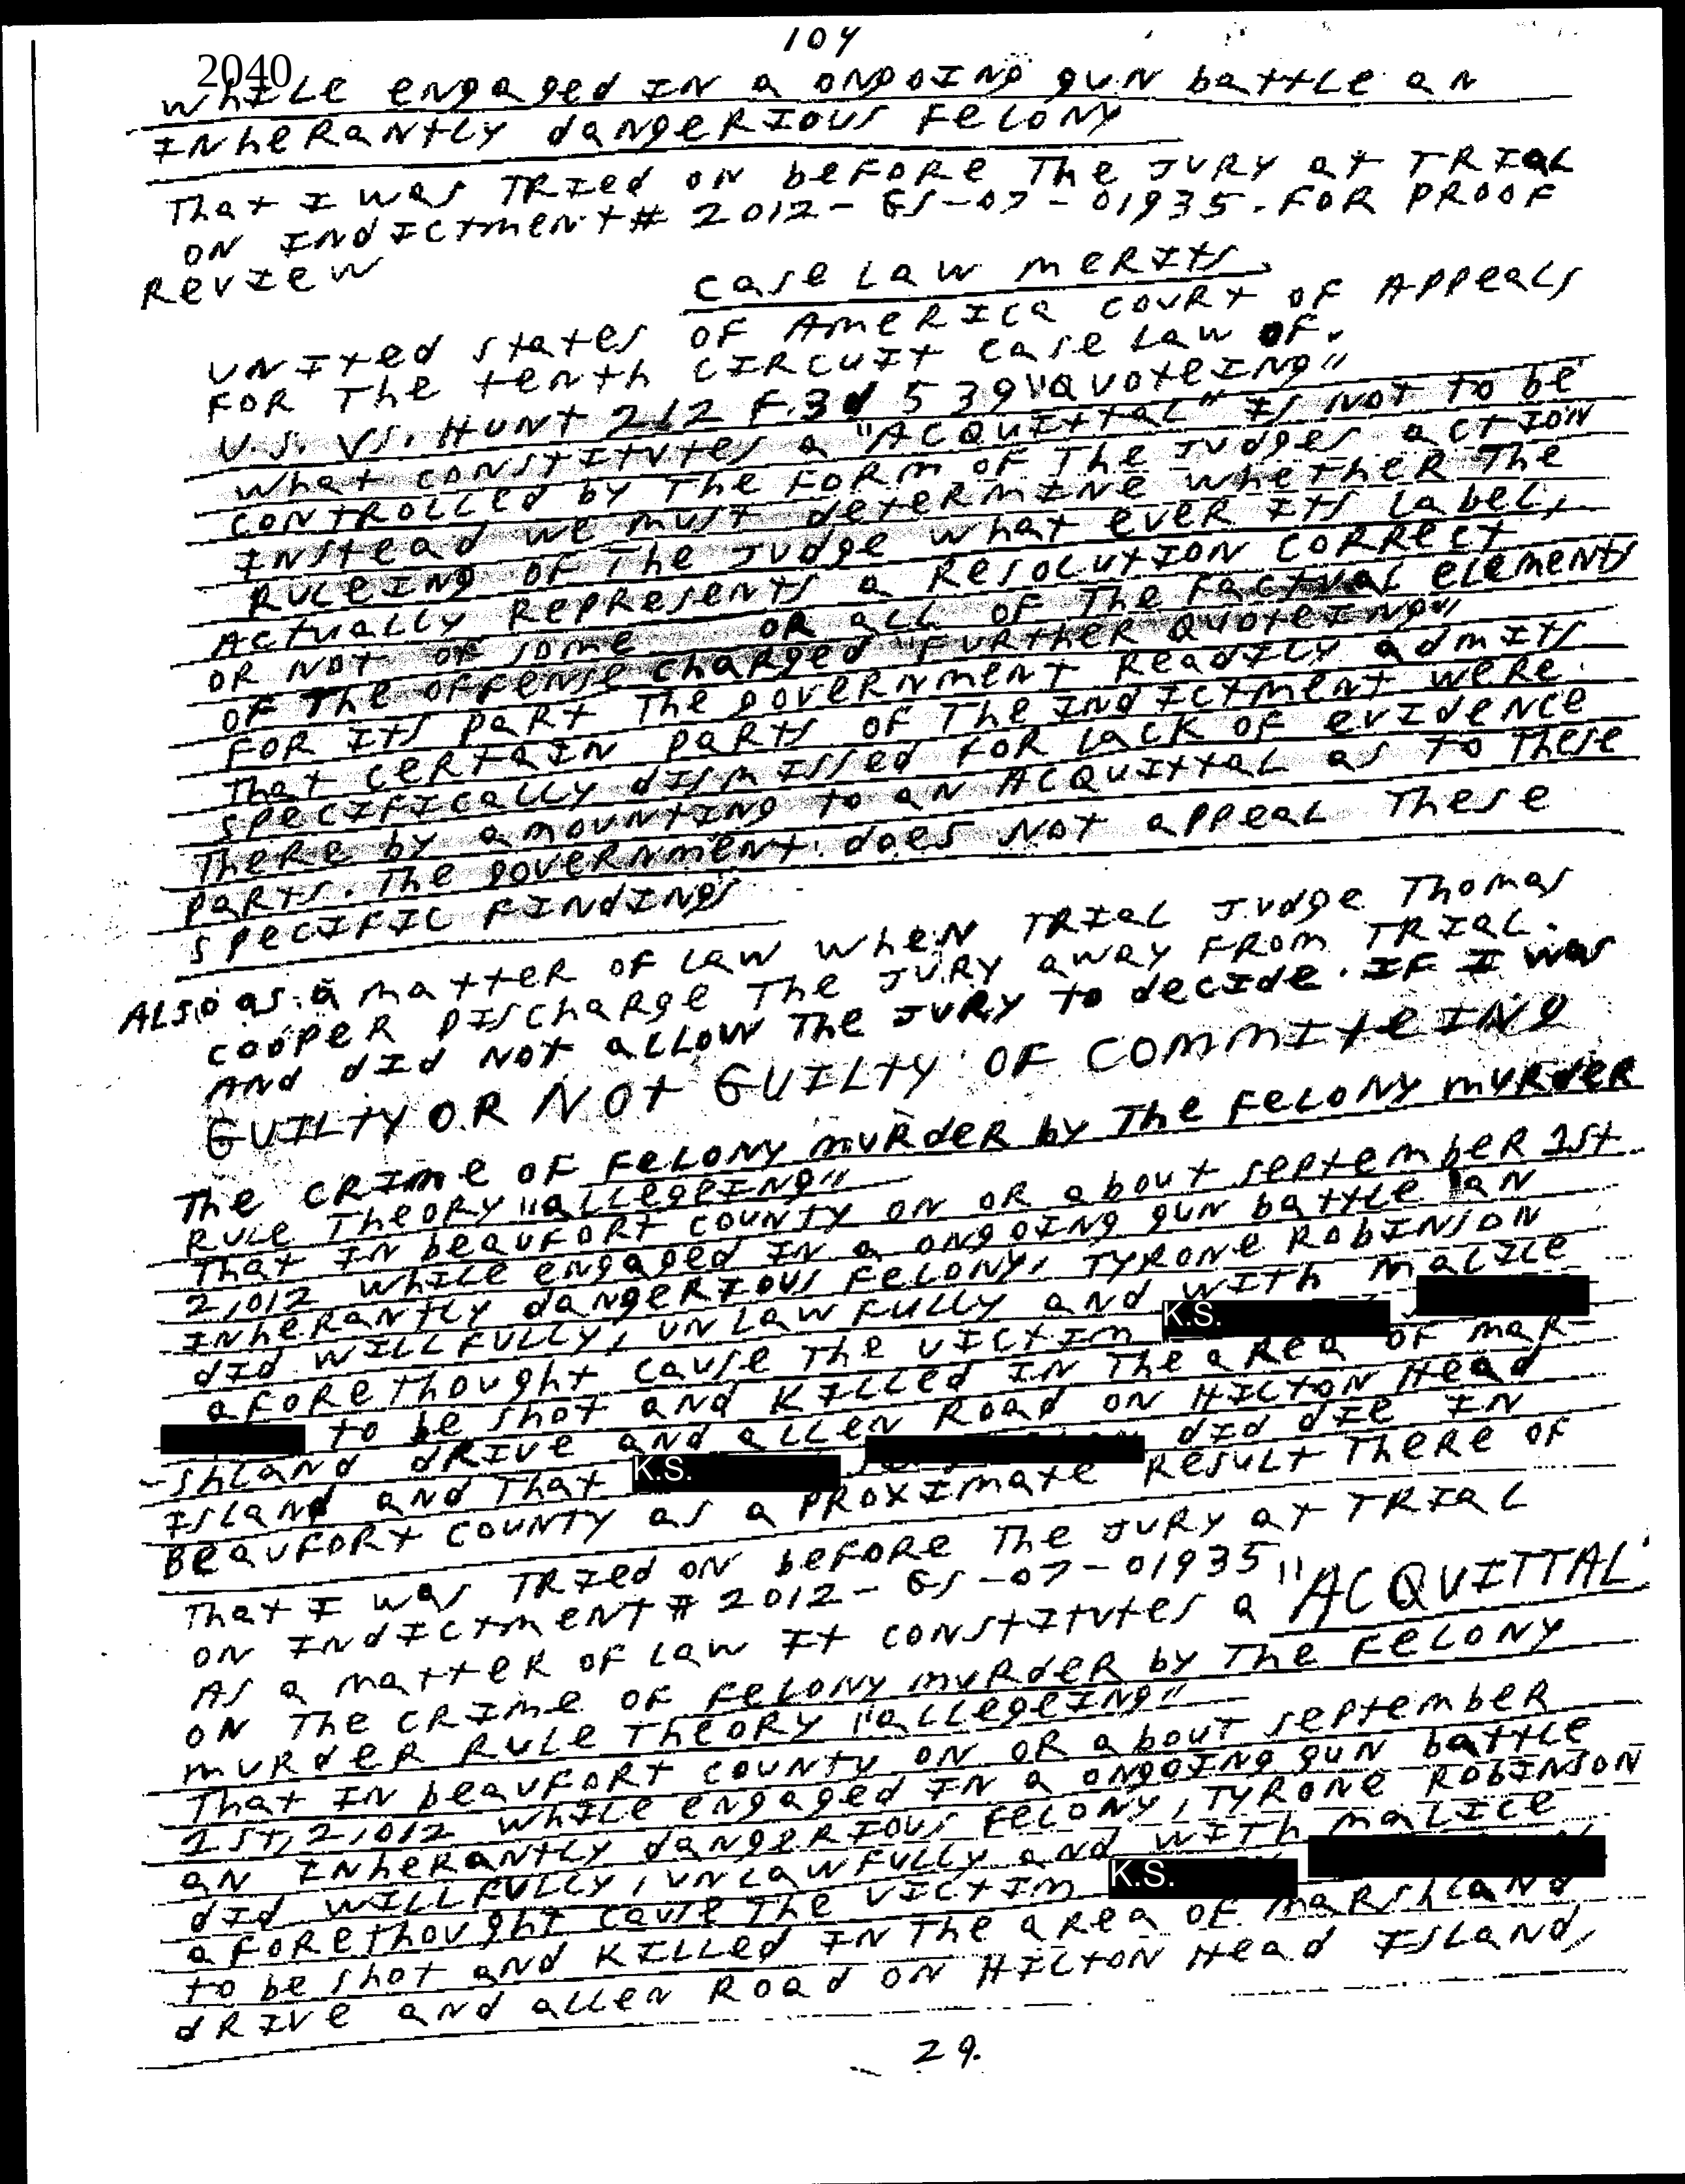 104
2040
WHILE ENGAGED IN A ONGOING GUN BATTLE AN
INHERANTLY DANGERIOUS FELONY
THAT I WAS TRIED ON BEFORE THE JURY AT TRIAL
ON INDICTMENT# 2012-GS-07-01935. FOR PROOF
REVIEW
CASE LAW MERITS
UNITED STATES OF AMERICA COURT OF APPEALS
FOR THE TENTH CIRCUIT CASE LAW OF.
U.S. VS. HUNT 212 F.3d 539 "QUOTEING"
WHAT CONSTITUTES A "ACQUITTAL" IS NOT TO BE
CONTROLLED BY THE FORM OF THE JUDGES ACTION
INSTEAD WE MUST DETERMINE WHETHER THE
RULEING OF THE JUDGE WHAT EVER ITS LABEL,
ACTUALLY REPRESENTS A RESOLUTION CORRECT
OR NOT OF SOME OR ALL OF THE FACTUAL ELEMENTS
OF THE OFFENSE CHARGED "FURTHER QUOTEING"
FOR ITS PART THE GOVERNMENT READILY ADMITS
THAT CERTAIN PARTS OF THE INDICTMENT WERE
SPECIFICALLY DISMISSED FOR LACK OF EVIDENCE
THERE BY AMOUNTING TO AN ACQUITTAL AS TO THESE
PARTS. THE GOVERNMENT DOES NOT APPEAL THESE
SPECIFIC FINDINGS
ALSO AS A MATTER OF LAW WHEN TRIAL JUDGE THOMAS
COOPER DISCHARGE THE JURY AWAY FROM TRIAL.
AND DID NOT ALLOW THE JURY TO DECIDE. IF I WAS
GUILTY OR NOT GUILTY OF COMMITEING
THE CRIME OF FELONY MURDER BY THE FELONY MURDER
RULE THEORY "ALLEGEING"
THAT IN BEAUFORT COUNTY ON OR ABOUT SEPTEMBER 1ST
2,012 WHILE ENGAGED IN A ONGOING GUN BATTLE AN
INHERANTLY DANGERIOUS FELONY, TYRONE ROBINSON
DID WILLFULLY, UNLAWFULLY AND WITH MALICE
AFORETHOUGHT CAUSE THE VICTIM K.S.
TO BE SHOT AND KILLED IN THE AREA OF MAR-
-SHLAND DRIVE AND ALLEN ROAD ON HILTON HEAD
ISLAND AND THAT K.S. DID DIE IN
BEAUFORT COUNTY AS A PROXIMATE RESULT THERE OF
THAT I WAS TRIED ON BEFORE THE JURY AT TRIAL
ON INDICTMENT # 2012-GS-07-01935"
AS A MATTER OF LAW IT CONSTITUTES A "ACQUITTAL"
ON THE CRIME OF FELONY MURDER BY THE FELONY
MURDER RULE THEORY "ALLEGEING"
THAT IN BEAUFORT COUNTY ON OR ABOUT SEPTEMBER
1ST, 2,012 WHILE ENGAGED IN A ONGOING GUN BATTLE
AN INHERANTLY DANGERIOUS FELONY, TYRONE ROBINSON
DID WILLFULLY, UNLAWFULLY AND WITH MALICE
AFORETHOUGHT CAUSE THE VICTIM K.S.
TO BE SHOT AND KILLED IN THE AREA OF MARSHLAND
DRIVE AND ALLEN ROAD ON HILTON HEAD ISLAND,
29.